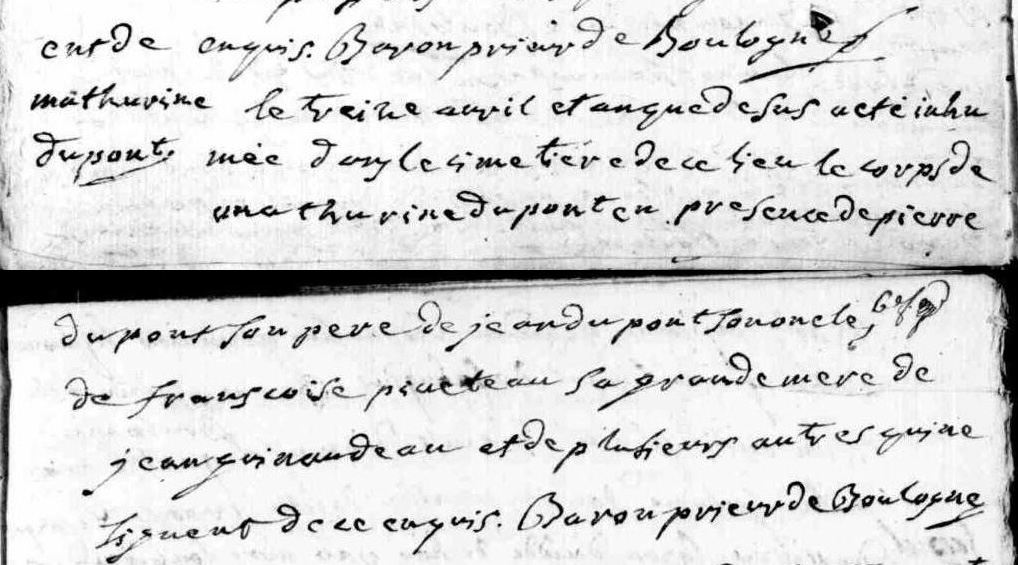 ent de enquis. Baron prieur de Boulogne
mathurine le treize avril et an que desus a cté inhu
dupont mée dans le cimetiére de ce lieu le corps de
mathurine dupont en presence de pierre
dupont son pere de jean dupont son oncle
de franscoise pineteau sa grande mere de
jean guinaudeau et de plusieurs autres qui ne
signent de ce enquis. Baron prieur de Boulogne